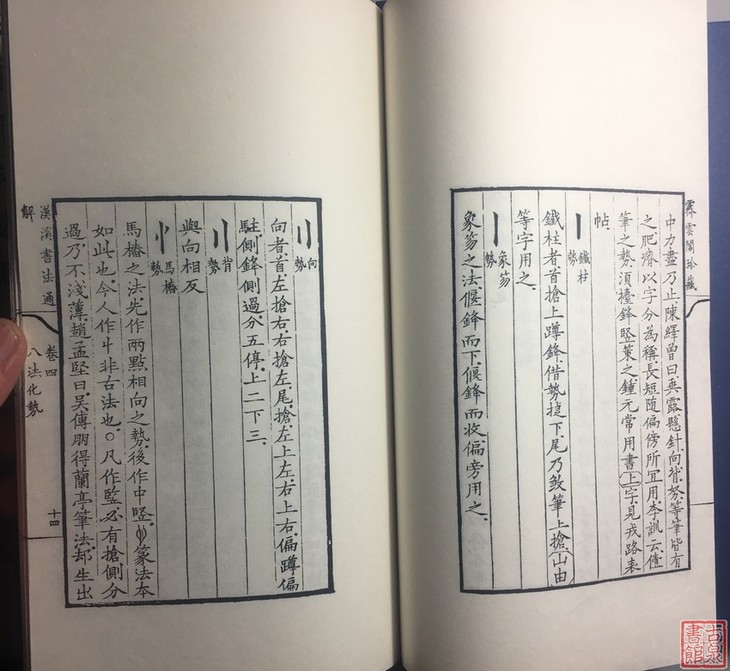 中力盡乃止陳繹曾曰垂露懸針向背努等筆皆有
之肥瘠以字分為稱長短隨偏傍所宜用李訓云僅
筆之勢須擡鋒竪策之鍾元常用書上字見戎路表
帖
鐵柱勢
鐵柱者首搶上蹲鋒借勢挫下尾乃煞筆上搶山由
等字用之
象笏勢
象笏之法偃鋒而下偃鋒而收偏旁用之
霖雲閣珍藏
向勢
向者首左搶右右搶左尾搶左上左右上右偏蹲偏
駐側鋒側過分五停上二下三
背勢
與向相反
馬樁勢
馬樁之法先作兩點相向之勢後作中竪篆法本
如此也今人作丩非古法也○凡作竪必有搶側分
過乃不淺薄趙孟堅曰吳傳朋得蘭亭筆法却生出
漢溪書法通解
卷四
八法化勢
十四
古泉書館